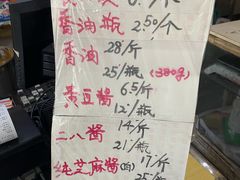 香油瓶 2.50/个
香油 28/斤
25/瓶 (380g)
黄豆酱 6.5/斤
12/瓶
二八酱 14/斤
21/瓶
纯芝麻酱(白) 17/斤